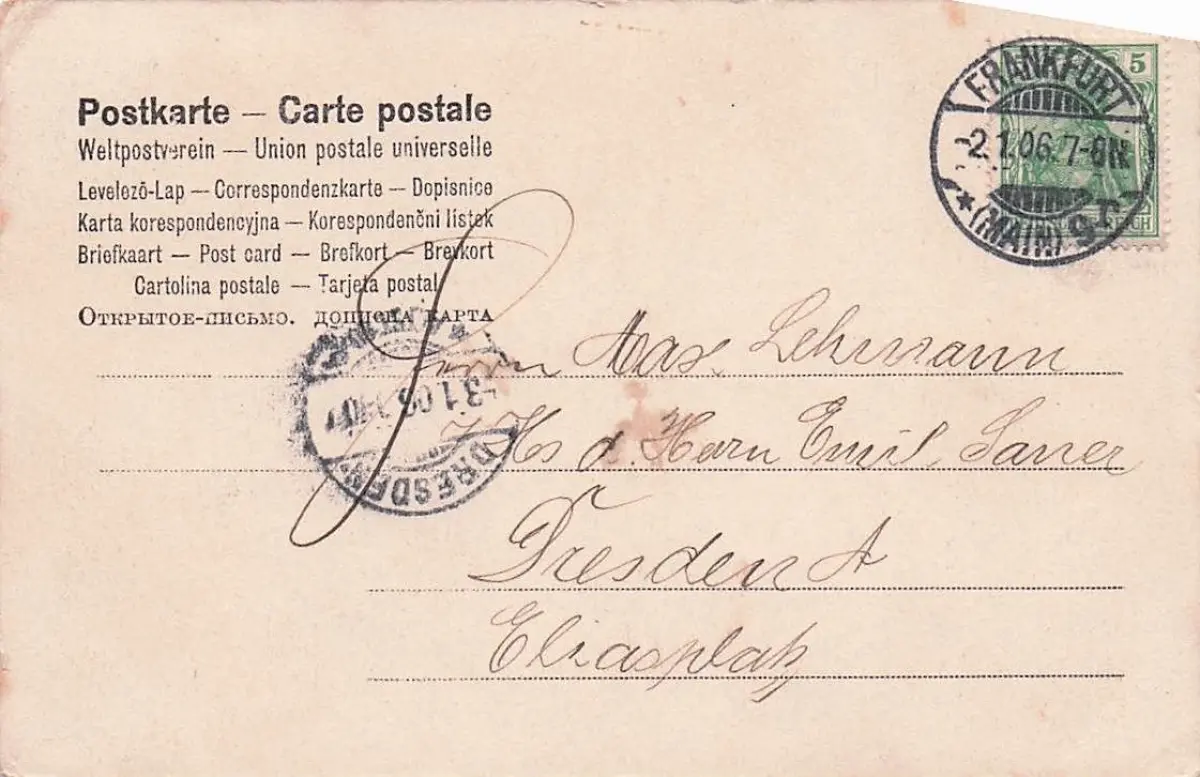 Postkarte — Carte postale
Weltpostverein — Union postale universelle
Levelező-Lap — Correspondenzkarte — Dopisnice
Karta korespondencyjna — Korespondenčni listek
Briefkaart — Post card — Brefkort — Brevkort
Cartolina postale — Tarjeta postal
Открытое-письмо. дописна карта
5
FRANKFURT
-2.1.06.7-8N.
* (MAIN) 9
Herrn Max Lehmann
DRESDEN
3 1 06
d. Herrn Emil
Dresden A
Eliasplatz